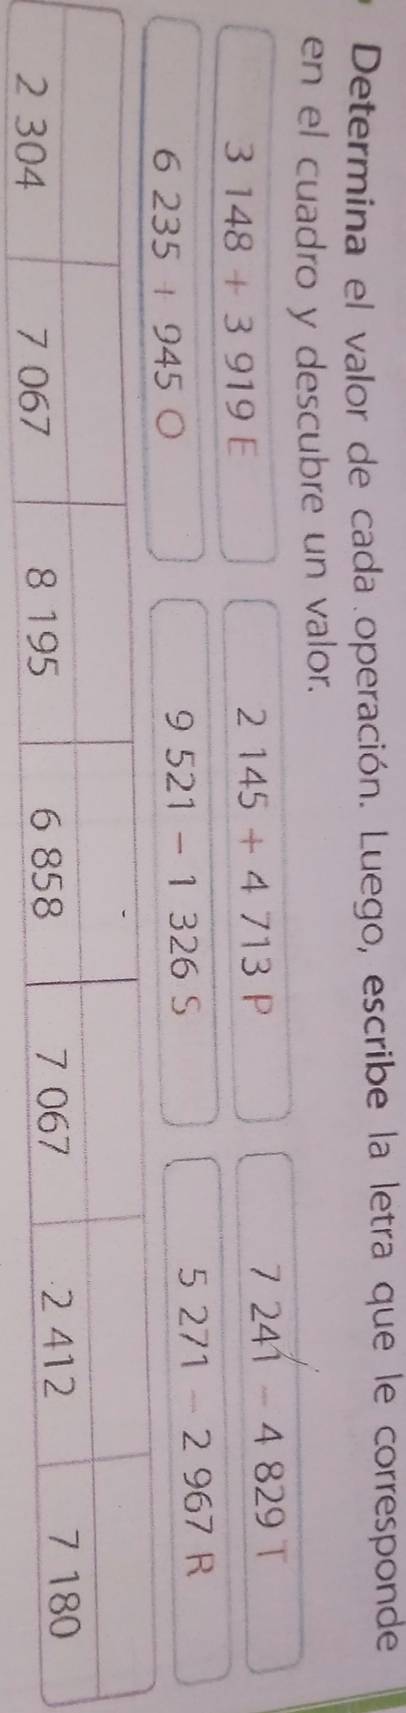 Determina el valor de cada operación. Luego, escribe la letra que le corresponde
en el cuadro y descubre un valor.
3 148 + 3 919 E 2 145 + 4 713 P 7 241 - 4 829 T
6 235 + 945 O 9 521 - 1 326 S 5 271 - 2 967 R
2 304 7 067 8 195 6 858 7 067 2 412 7 180